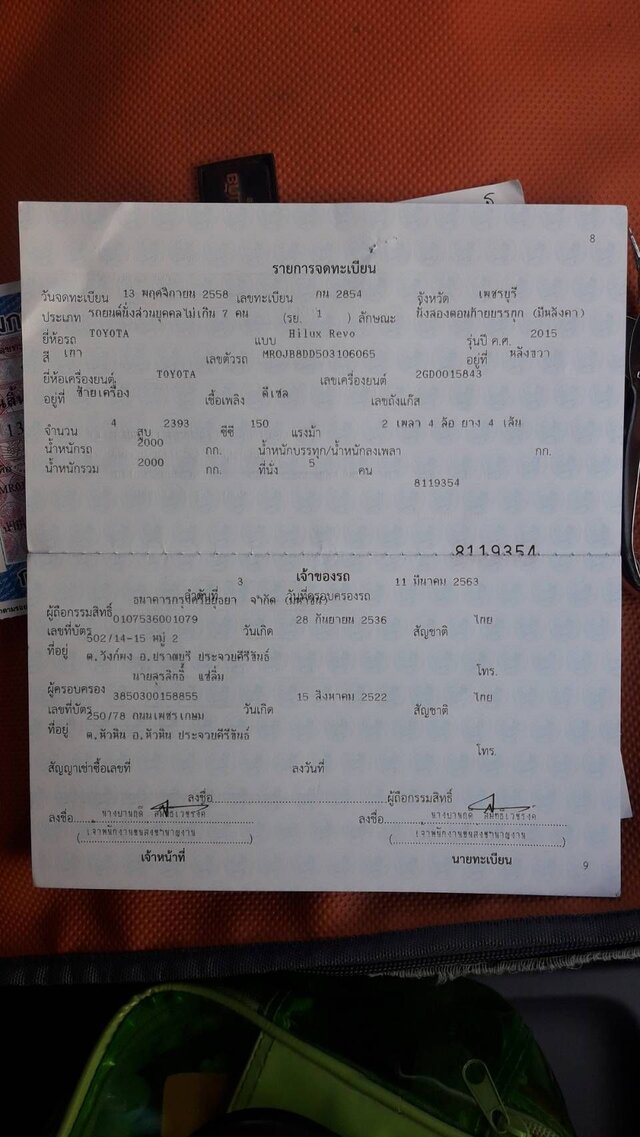 8
รายการจดทะเบียน
วันจดทะเบียน 13 พฤศจิกายน 2558 เลขทะเบียน กน 2854 จังหวัด เพชรบุรี
ประเภท รถยนต์นั่งส่วนบุคคลไม่เกิน 7 คน (รย. 1 ) ลักษณะ นั่งสองตอนท้ายบรรทุก (มีหลังคา)
ยี่ห้อรถ TOYOTA แบบ Hilux Revo รุ่นปี ค.ศ. 2015
สี เทา เลขตัวรถ MR0JB8DD503106065 อยู่ที่ หลังขวา
ยี่ห้อเครื่องยนต์ TOYOTA เลขเครื่องยนต์ 2GD0015843
อยู่ที่ ซ้ายเครื่อง เชื้อเพลิง ดีเซล เลขถังแก๊ส
จำนวน 4 สูบ 2393 ซีซี 150 แรงม้า 2 เพลา 4 ล้อ ยาง 4 เส้น
น้ำหนักรถ 2000 กก. น้ำหนักบรรทุก/น้ำหนักลงเพลา กก.
น้ำหนักรวม 2000 กก. ที่นั่ง 5 คน
8119354
8119354
เจ้าของรถ
ลำดับที่ 3 วันที่ครอบครองรถ 11 มีนาคม 2563
ผู้ถือกรรมสิทธิ์ ธนาคารกรุงศรีอยุธยา จำกัด (มหาชน)
เลขที่บัตร 0107536001079 วันเกิด 28 กันยายน 2536 สัญชาติ ไทย
ที่อยู่ 502/14-15 หมู่ 2
ต.วังก์พง อ.ปราณบุรี ประจวบคีรีขันธ์
โทร.
ผู้ครอบครอง นายสุรสิทธิ์ แซ่ลิ่ม
เลขที่บัตร 3850300158855 วันเกิด 15 สิงหาคม 2522 สัญชาติ ไทย
ที่อยู่ 250/78 ถนนเพชรเกษม
ต.หัวหิน อ.หัวหิน ประจวบคีรีขันธ์
โทร.
สัญญาเช่าซื้อเลขที่ ลงวันที่
ลงชื่อ ผู้ถือกรรมสิทธิ์
ลงชื่อ ลงชื่อ
(เจ้าพนักงานขนส่งชำนาญงาน) (เจ้าพนักงานขนส่งชำนาญงาน)
เจ้าหน้าที่ นายทะเบียน
9